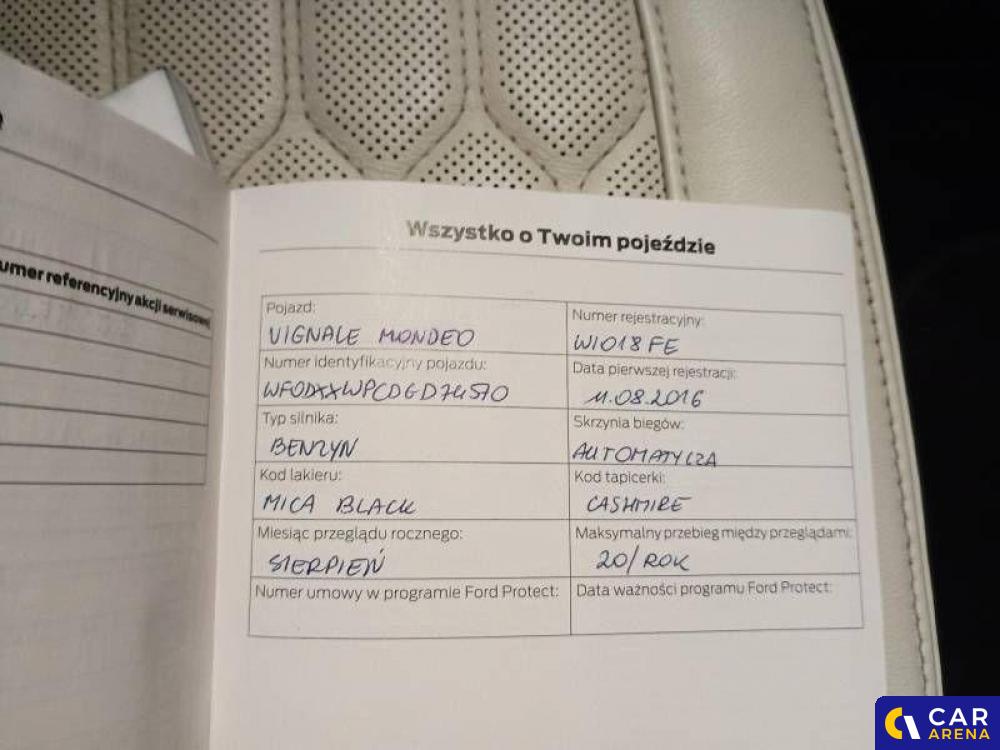 umer referencyjny akcji serwisowej
Wszystko o Twoim pojeździe
Pojazd:
VIGNALE MONDEO
Numer rejestracyjny:
WI018FE
Numer identyfikacyjny pojazdu:
WF0DXXWPCDGD74570
Data pierwszej rejestracji:
11.08.2016
Typ silnika:
BENZYN
Skrzynia biegów:
AUTOMATYCZA
Kod lakieru:
MICA BLACK
Kod tapicerki:
CASHMIRE
Miesiąc przeglądu rocznego:
SIERPIEŃ
Maksymalny przebieg między przeglądami:
20/ROK
Numer umowy w programie Ford Protect:
Data ważności programu Ford Protect:
CAR
ARENA